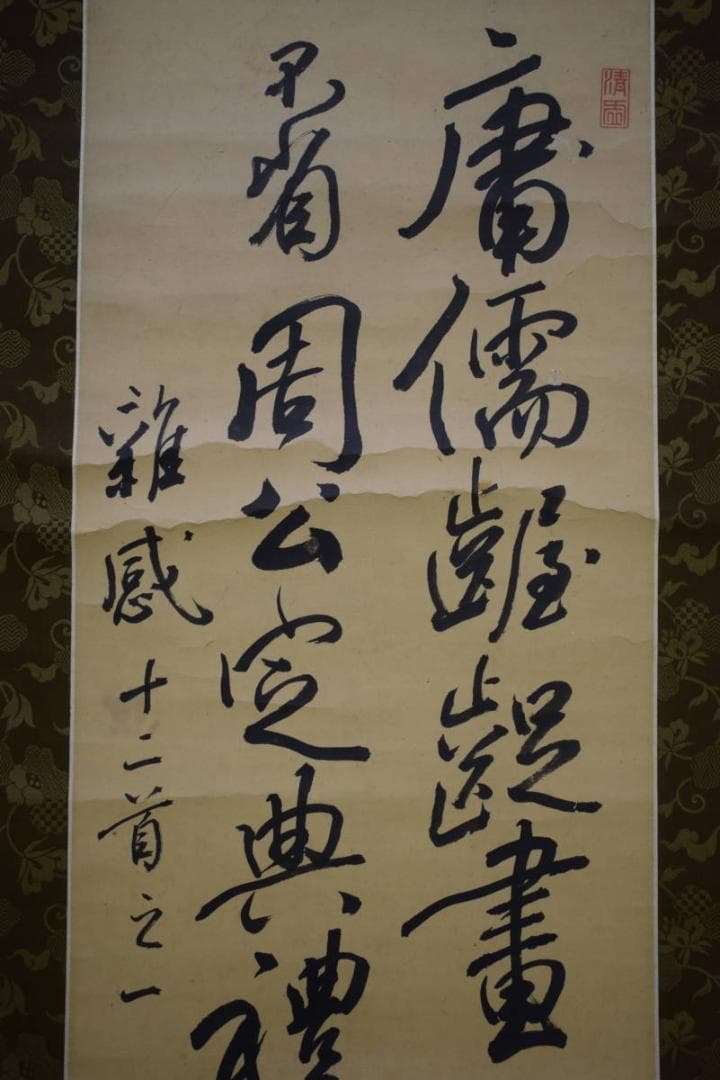 庸儒齷齪畫
不省周公定典禮
雜感十二首之一